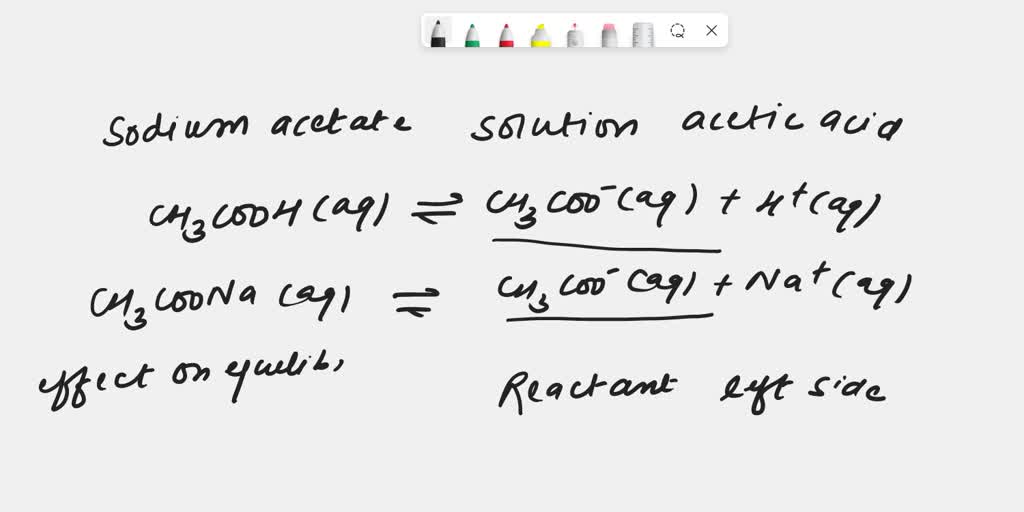 Sodium acetate solution acetic acid
CH₃COOH (aq) ⇌ CH₃COO⁻ (aq) + H⁺ (aq)
CH₃COONa (aq) ⇌ CH₃COO⁻ (aq) + Na⁺ (aq)
effect on equilib,
Reactant left side